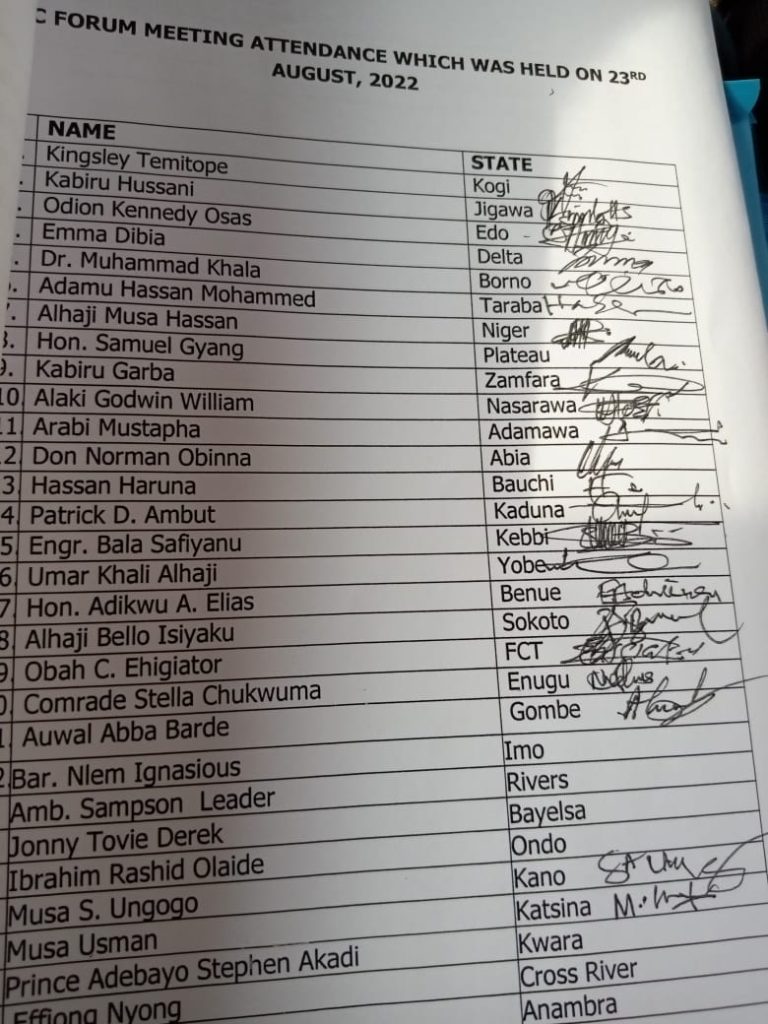 C FORUM MEETING ATTENDANCE WHICH WAS HELD ON 23RD
AUGUST, 2022
NAME STATE
. Kingsley Temitope Kogi
. Kabiru Hussani Jigawa
. Odion Kennedy Osas Edo
. Emma Dibia Delta
. Dr. Muhammad Khala Borno
. Adamu Hassan Mohammed Taraba
7. Alhaji Musa Hassan Niger
8. Hon. Samuel Gyang Plateau
9. Kabiru Garba Zamfara
10. Alaki Godwin William Nasarawa
11. Arabi Mustapha Adamawa
2. Don Norman Obinna Abia
3. Hassan Haruna Bauchi
4. Patrick D. Ambut Kaduna
5. Engr. Bala Safiyanu Kebbi
6. Umar Khali Alhaji Yobe
7. Hon. Adikwu A. Elias Benue
8. Alhaji Bello Isiyaku Sokoto
9. Obah C. Ehigiator FCT
0. Comrade Stella Chukwuma Enugu
1. Auwal Abba Barde Gombe
2. Bar. Nlem Ignasious Imo
Amb. Sampson Leader Rivers
Jonny Tovie Derek Bayelsa
Ibrahim Rashid Olaide Ondo
Musa S. Ungogo Kano
Musa Usman Katsina
Prince Adebayo Stephen Akadi Kwara
Effiong Nyong Cross River
Anambra